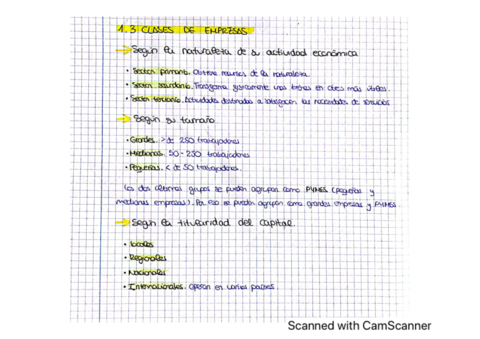 1.3 CLASES DE EMPRESAS
→ Según la naturaleza de su actividad económica
• Sector primario. Obtiene recursos de la naturaleza.
• Sector secundario. Transforma físicamente unos bienes en otros más útiles.
• Sector terciario. Actividades destinadas a las necesidades de servicios
→ Según su tamaño
• Grandes. > de 250 trabajadores
• Medianas. 50 - 250 trabajadores
• Pequeñas. < de 50 trabajadores.
Los dos últimos grupos se pueden agrupar como PYMES (pequeñas y
medianas empresas). Por eso se pueden agrupar como grandes empresas y PYMES.
→ Según la titularidad del capital.
• Locales
• Regionales
• Nacionales
• Internacionales. Operan en varios países
Scanned with CamScanner